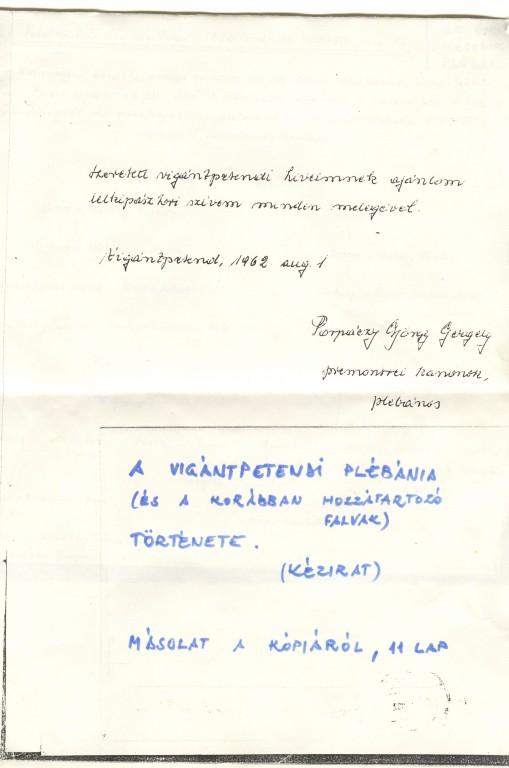 Szeretett vigántpetendi híveimnek ajánlom
lelkipásztori szivem minden melegével.
Vigántpetend, 1962 aug. 1
Porpáczy György Gergely
premontrei kanonok,
plébános
A VIGÁNTPETENDI PLÉBÁNIA
(ÉS A KORÁBBAN HOZZÁTARTOZÓ
FALVAK)
TÖRTÉNETE.
(KÉZIRAT)
MÁSOLAT A KÓPIÁRÓL, 11 LAP